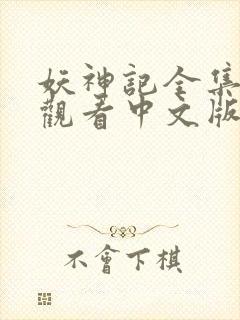 妖神記全集
觀看中文版
不會下棋